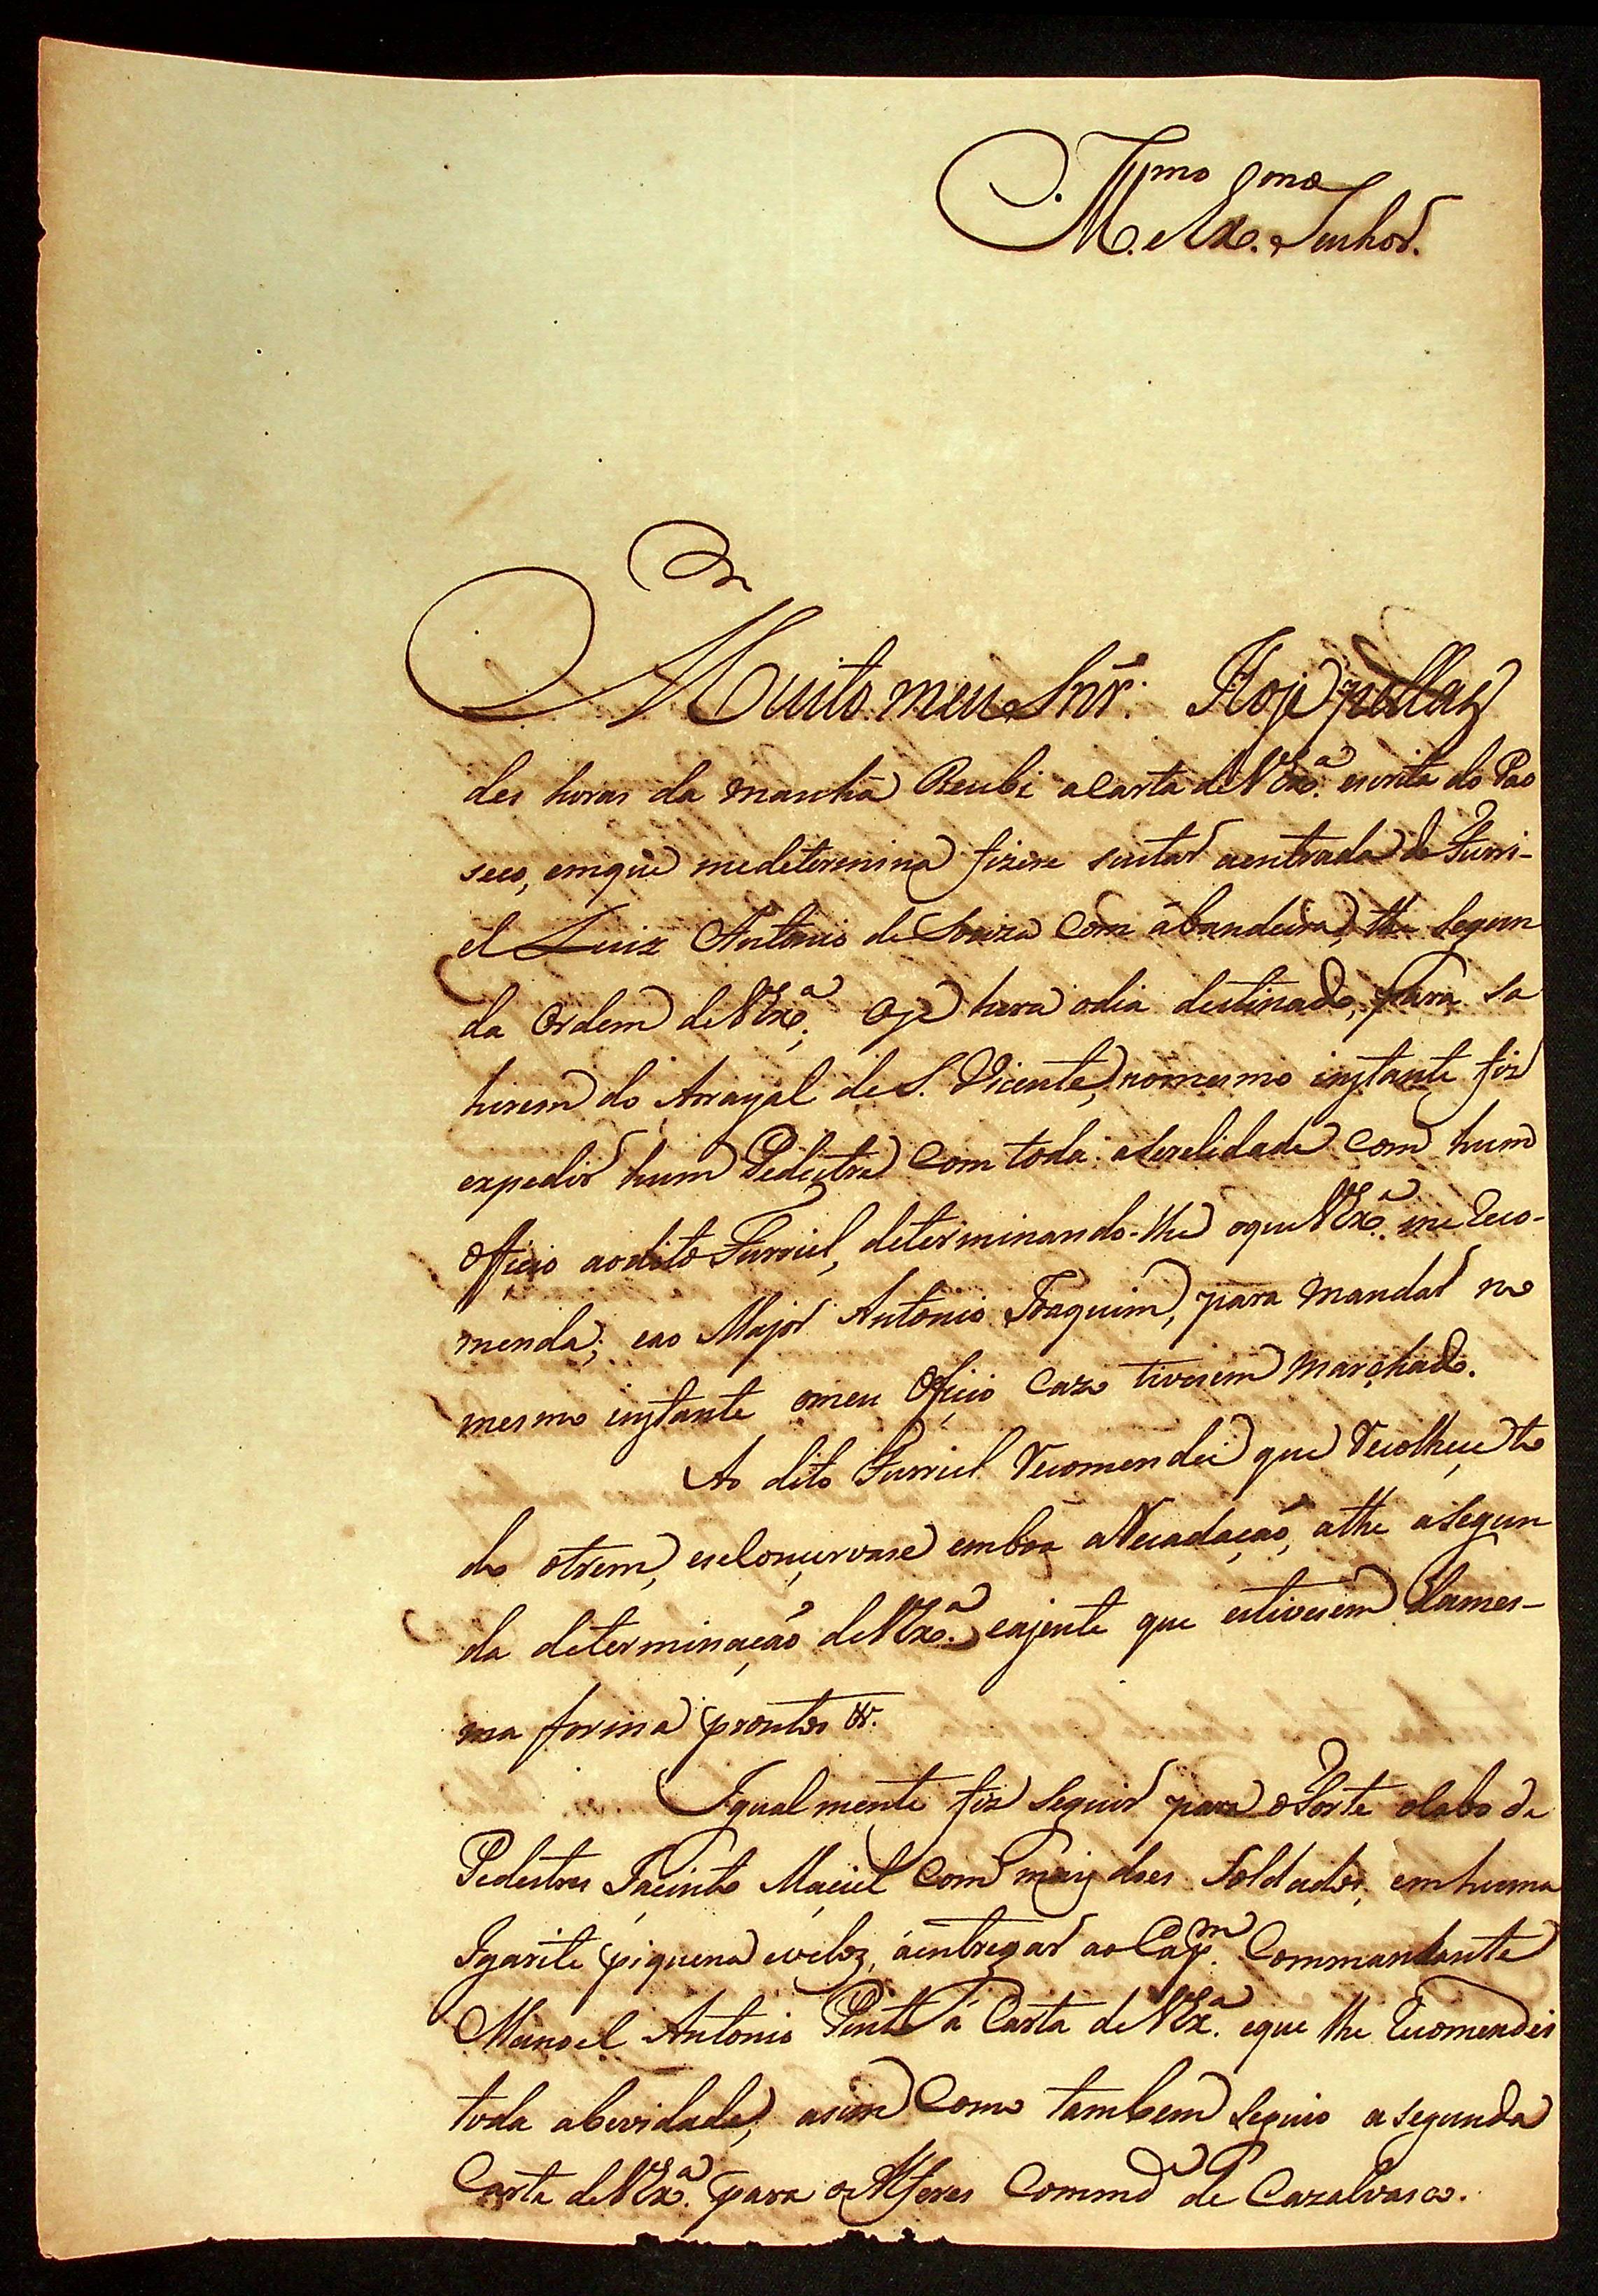 Illmo e Exmo Senhor.
Muito meu Snr. Hoje pellas
des horas da manhã Recubi a Carta de VExa. escrita do Pao
seco, emque medetermina fizese suztar aentrada do Furri-
el Luiz Antonio de Souza Com abandeira, the Segun
da Ordem de VExa; Oje hera odia destinado, para Sa
hirem do Arrayal de S. Vicente, nomesmo instante fiz
expedir hum Pedestre Com toda aSerelidade Com hum
Officio aodito Furriel, determinando-lhe oque VExa. me Reco-
menda; eao Major Antonio Joaquim, para Mandar no
mesmo instante omeu Oficio Cazo tivesem Marchado.
Ao dito Furriel Recomendei que Recolheçe to
do otrem, eseConçervase emboa aRecadação, athe aSegun
da determinação de VExa. eajente que estivesem dames-
ma forma prontos &.
Igualmente fiz Seguir para oForte oCabo de
Pedestres Jacinto Maciel Com mais does Soldados, emhuma
Igarite piquena eveloz, áentregar ao Capm. Commandante
Manoel Antonio Pinto á Carta de VExa. eque lhe Recomendei
toda abrevidade, asim Como tambem Seguio aSegunda
Carta de VExa. para oAlferes Commde de Cazalvasco.